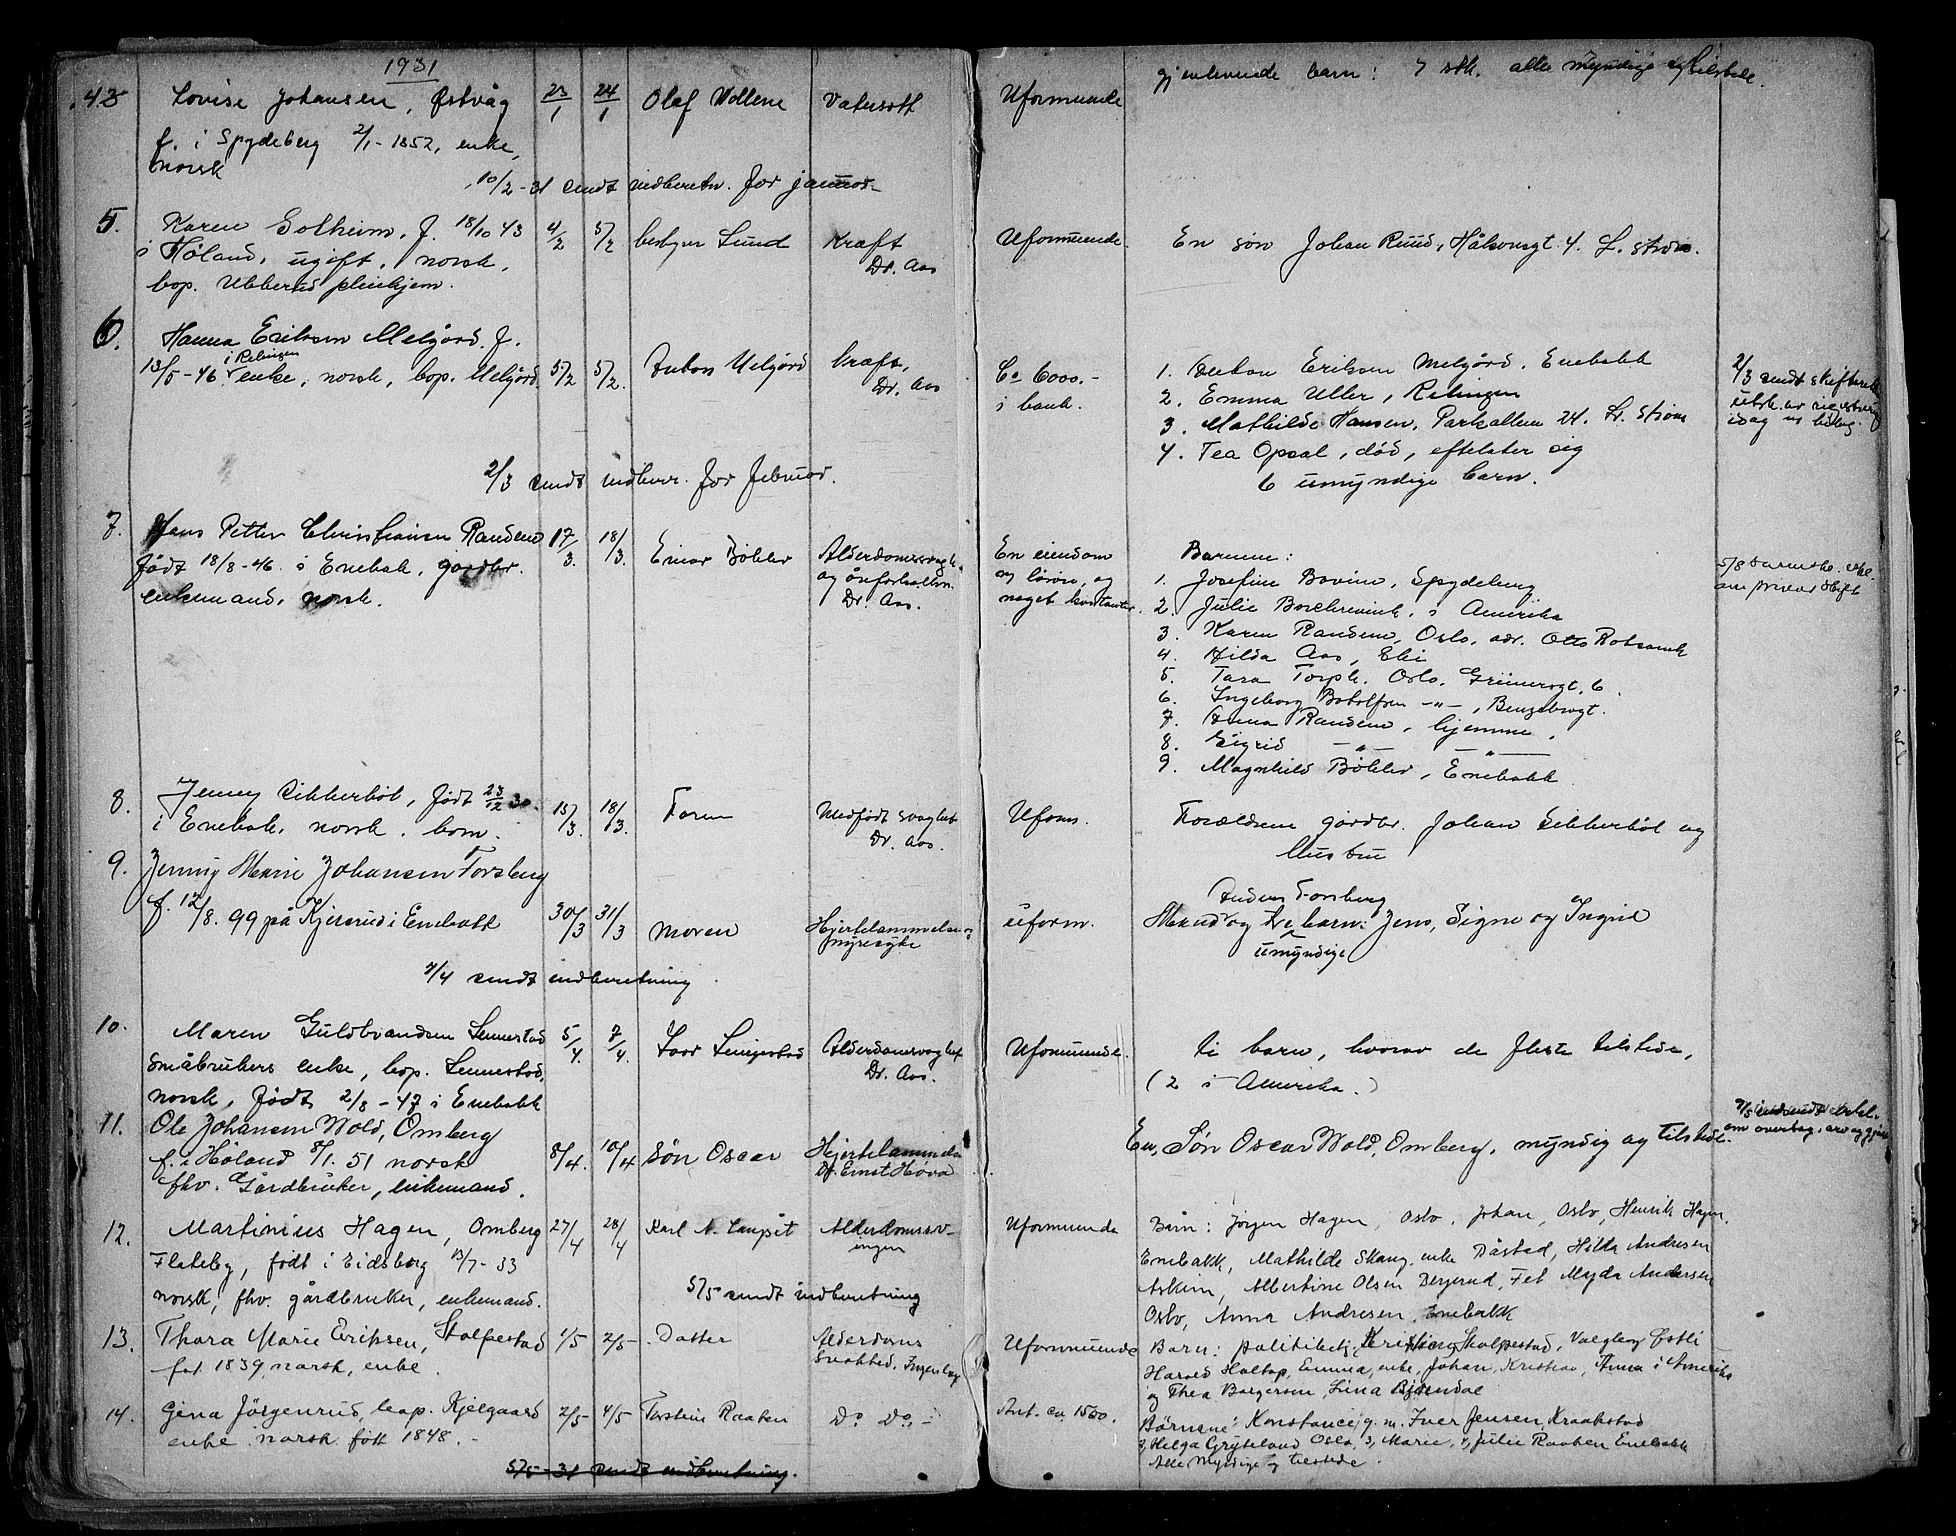 1931
Lovise Johansen, Østvåg 23/1 24/1 Olaf Vollene Vatersott Uformuende gjenlevende barn: 7 stk. alle myndige og tilstede.
f. i Spydeberg 2/1-1852, enke,
norsk
10/2-31 sendt indberetn. for januar
5. Karen Solheim, f. 18/10 43 4/2 5/2 bestyrer Lund Kræft Uformuende. En søn Johan Ruud, Håkonsgt 4. L. strøm.
i Høland, ugift, norsk, Dr. Aas
bop. Ubberud pleiehjem.
6. Hanna Eriksen Melgård. f.
i Relingen
13/5-46 enke, norsk, bop. Melgård 5/2 5/2. Anton Melgård kræft, Dr. Aas Ca 6000.- i bank.
1. Anton Eriksen Melgård. Enebakk
2. Emma Uller, Relingen
3. Mathilde Hansen, Parkalleen 24. L. strøm
4. Tea Opsal, død, efterlater sig
6 umyndige barn.
2/3 sendt
2/3 sendt indberr. for februar.
7. Hans Petter Christiansen Randem 17/3. 18/3. Einar Böhler Alderdomssvagh. En eiendom Barnene:
født 18/8-46 i Enebak, gårdbr. og åreforkalkn. og løsøre, og
enkemand, norsk. Dr. Aas. noget kontanter.
1. Josefine Bovim, Spydeberg
2. Julie Borchrevink, i Amerika
3. Karen Randem, Oslo, adr. Otto
4. Hilda Aas, Ski
5. Tara Torph. Oslo. Grünersgt. 6.
6. Ingeborg Botolfsen -"-,
7. Anna Randem, hjemme,
8. Sigrid -"- -"-
9. Magnhild Böhler, Enebakk
5/8
om privat skift
8. Jenny Sikkerböl, født 23/12 30. 15/3. 18/3. Faren Medfødt svaghet Uform. Forældrene gårdbr. Johan Sikkerböl og
i Enebak, norsk. barn. Dr. Aas. Hustru
9. Jenny Marie Johansen Forsberg
Anders Forsberg
f. 12/8. 99 på Kjersrud i Enebakk 30/3 31/3 Moren Hjertelammelse uform. Mand og tre barn: Jens, Signe og Ingrid
og nyresyke umyndige
7/4 sendt indberetning
10. Maren Guldbrandsen Sennestad 5/4. 7/4. Alderdomssvaghet Uformuende. ti barn, hvorav de fleste tilstede,
småbrukers enke, bop. Sennestad, Dr. Aas. (2 i Amerika.)
norsk, født 2/8-47 i Enebakk
11. Ole Johansen Wold, Omberg
f. i Høland 8/1. 51 norsk 8/4. 10/4 Søn Oscar Hjertelammelse En, Søn Oscar Wold, Omberg, myndig og tilstede.
fhv. Gårdbruker, enkemand. Dr. Ernst Høva
om overtag. arv og gjæld
12. Martinius Hagen, Omberg 27/4 28/4 Karl A. Langsét Alderdomssv- Uformuende Barn: Jörgen Hagen, Oslo, Johan, Oslo, Henrik Hagen,
Flateby, født i Eidsberg 13/7-33 ingen Enebakk, Mathilde Skaug, enke Båstad, Hilda Andresen
norsk, fhv. gårdbruker, enkemand. 5/5 sendt indberetning Askim, Albertine Olsen Bergerud, Fet Myda Andersen
Oslo, Anna Andresen, Enebakk
13. Thora Marie Eriksen, Stolpestad 1/5 2/5- Datter Alderdoms Uformuende Barn: politibetj. Kristian Stolpestad, Valborg Østli
fot 1839, norsk, enke. svakhed. Ingen læg Harald Holtop, Emma, enke, Johan, Kristian, Anna i Amerika
og Thea Borgersen, Lina Björndal
14. Gina Jörgenrud, bop. Kjelgaard 2/5- 4/5 Torstein Raaken Do Do - Ant. ca 1500. Børnene: Konstance, g. m. Iver Jensen, Kraakstad
enke norsk fött 1848. 2, Helga Grýteland Oslo, 3, Marie, 4, Julie Raaken Enebakk
Alle Myndige og tilstede.
5/5-31 sendt indberetning.